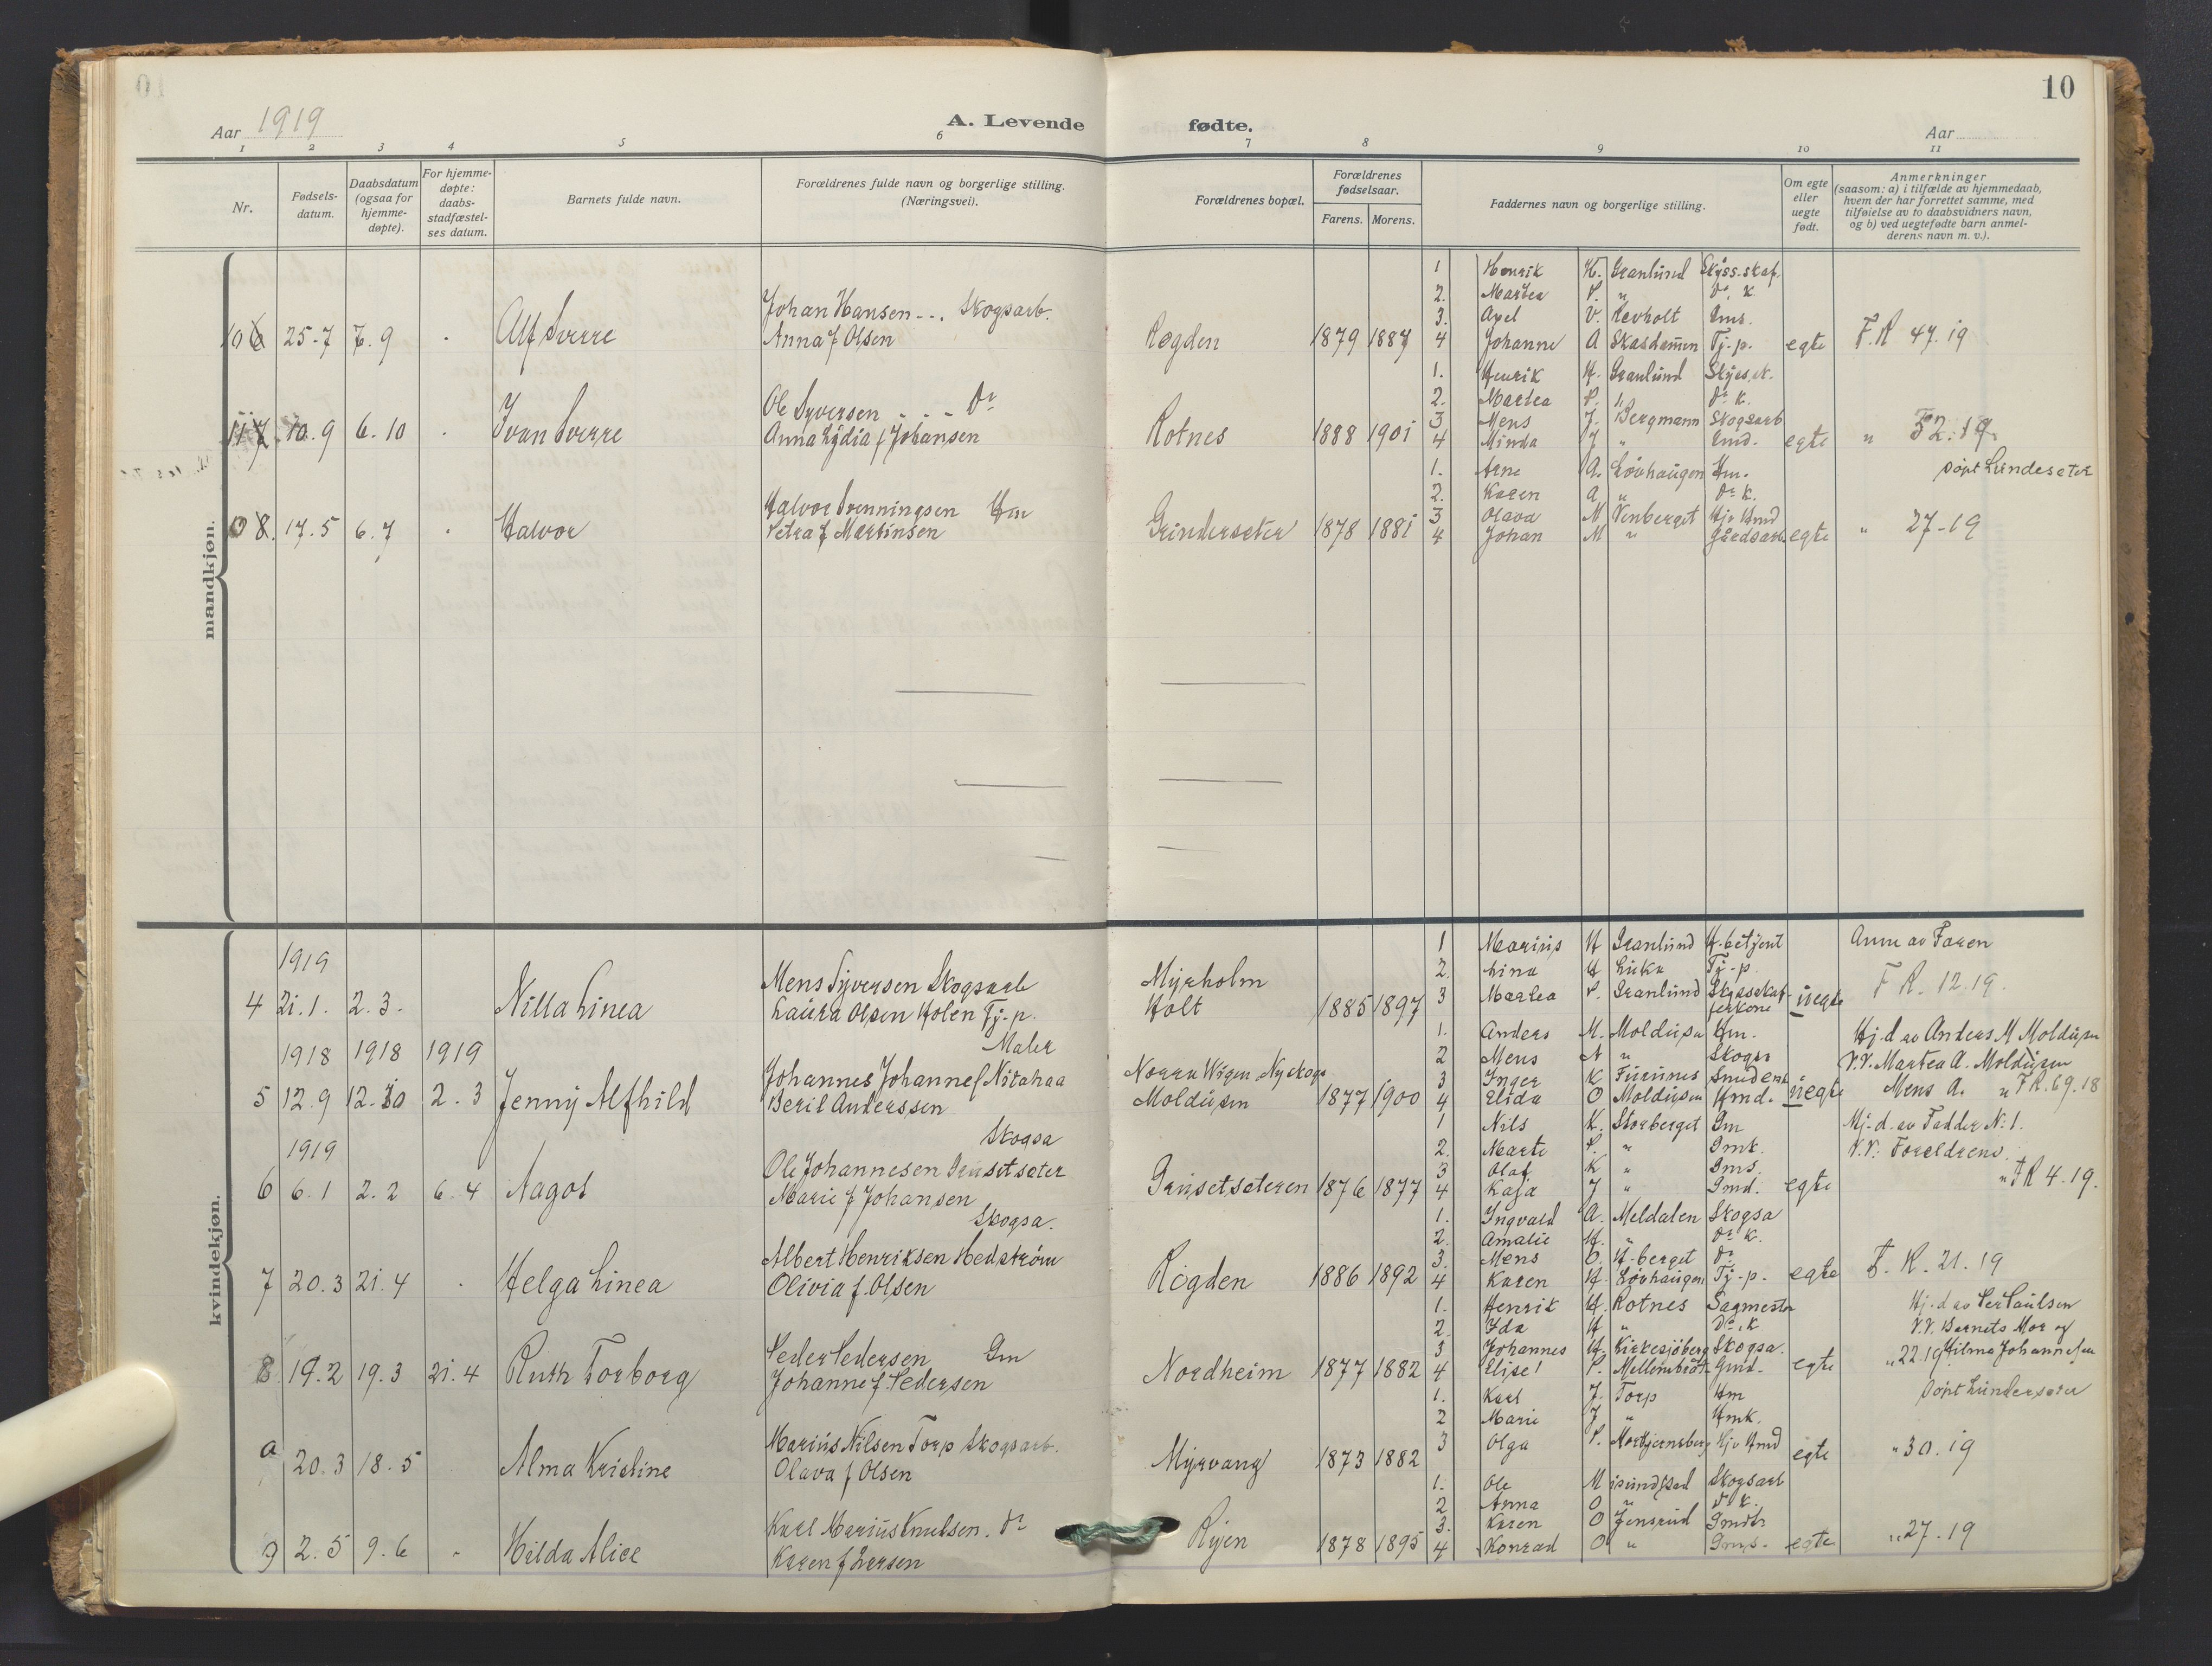 10
Aar 1919
A. Levende fødte.
Aar
1 2 3 4 5 6 7 8 9 10 11
Nr.
Fødsels-datum.
Daabsdatum (ogsaa for hjemme-døpte).
For hjemme-døpte: daabs-stadfæstel-ses datum.
Barnets fulde navn.
Forældrenes fulde navn og borgerlige stilling. (Næringsvei).
Forældrenes bopæl.
Forældrenes fødselsaar.
Farens. Morens.
Faddernes navn og borgerlige stilling.
Om egte eller uegte født.
Anmerkninger (saasom: a) i tilfælde av hjemmedaab, hvem der har forrettet samme, med tilføielse av to daabsvidners navn, og b) ved uegtefødte barn anmel-derens navn m. v.).
mandkjøn.
10 6 25-7 7.9 Alf Sverre
Johan Hansen - - . Skogsarb.
Anna f Olsen
Rogden 1879 1887
1 Henrik H. Granlund Skyss.skaf.
2. Martea P. " Do. K.
3. Axel V. Revholt Gms.
4 Johanne A Skasdammen Tj.-p.
egte F.R 47.19
11 7 10.9 6.10 Ivan Sverre
Ole Syversen - - - Do
Anna Lydia f Johansen
Rotnes 1888 1901
1. Henrik H. Granlund Skyss.sk.
2. Martea P. " Do K.
3 Mens J. Bergmann Skogsarb
4 Minda J " Gmd.
egte " 52.19.
8. 17.5 6.7 Halvor
Halvor Svenningsen Hm
Petra f Martinsen
Grinderseter 1878 1881
1. Arne A. Løvhaugen Hm.
2. Karen A. " Do K.
3 Olava M Venberget Hjv Hmd
4 Johan M " Gårdsarb
egte " 27-19
Døpt Lundeseter
kvindekjøn.
1919
4 21.1. 2.3. Nilla Linea
Mens Syversen Skogsarb
Laura Olsen Holen Tj.-p.
Myrholm
Holt
1885 1897
1 Marius H Granlund H.betjent
2. Lina H Tj-p.
3 Martea P. Granlund Skyssskaf-ferkone
uegte
Anm av Faren
F R. 12.19.
1918 1918 1919
5 12.9 12.10 2.3 Jenny Alfhild
Maler
Johannes Johannes Nitahaa
Beril Anderssen
Norra Viggen Nyskoga
Moldusen
1877 1900
1. Anders M. Moldusen Hm.
2 Mens N " Skogsa
3 Inger K Furunes Smedenk
4 Elida O Moldusen Hmd.
uegte
Hj.d av Anders M Moldusen
V.V. Martea A. Moldusen
Mens A. " F R. 69.18
1919
6 6.1 2.2 6.4 Aagot
Skogsa
Ole Johannesen Grusetseter
Marie f Johansen
Grusetseteren 1876 1877
1 Nils K. Storberget Gm
2. Marte P. " Gmk.
3 Olaf K " Gms.
4 Kaja J " Gmd.
egte
Hj-d. av Fadder N: 1.
V.V: Foreldrene.
" F R 4.19.
7 20.3 21.4 Helga Linea
Skogsa.
Albert Henriksen Hedstrøm
Olivia f. Olsen
Rogden 1886 1892
1. Ingvald A. Meldalen Skogsa
2. Amalie H. " Do K.
3. Mens O. H-berget Do
4 Karen H. Løvhaugen Tj-p.
egte F. R. 21.19
8 19.2 19.3 21.4 Ruth Torborg
Peder Pedersen Gm
Johanne f. Pedersen
Nordheim 1877 1882
1. Henrik H. Rotnes Sagmester
2. Ida H " Do. K
3 Johannes H. Kirkesjøberg Skogsa.
4 Elise P. Mellembråt Gmd.
egte
Hj.d av Per Paulsen
V.V. Barnets Mor og
"22.19 Hilma Johannesen
a 20.3 18.5 Alma Kristine
Marius Nilsen Torp Skogsarb.
Olava f Olsen
Myrvang 1873 1882
1. Karl J. Torp Hm
2 Marie J " Hmk.
3 Olga P. Mortjernsberg Hjv Hmd
egte
Døpt Lunderseter
"30.19
9 2.5 9.6 Hilda Alice
Karl Marius Knutsen. Do
Karen f Larsen
Ryen 1878 1895
1. Ole M Skogsarb
2 Anna O " Do K.
3. Karen O Jensrud Gmdtr
4 Konrad O " Gms.
egte "27.19